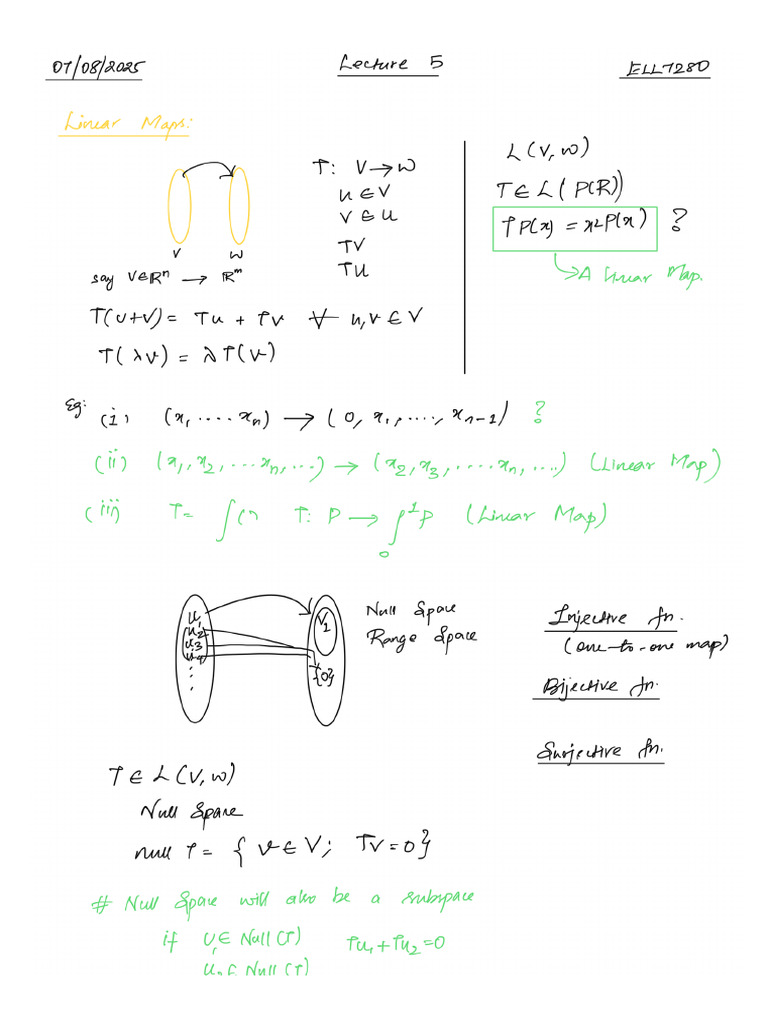 07/08/2025
Lecture 5
ELL7280
Linear Maps:
V
W
say V∈ℝⁿ → ℝᵐ
T: V → W
u ∈ V
V ∈ U
TV
TU
T(U+V) = Tu + TV ∀ u,v ∈ V
T(λV) = λT(V)
L(V,W)
T ∈ L(P(R))
TP(x) = x²P(x) ?
→ A linear Map.
Eg: (i) (x₁ .... xₙ) → (0, x₁, ...., xₙ₋₁) ?
(ii) (x₁, x₂, ... xₙ, ...) → (x₂, x₃, .... xₙ, ....) (Linear Map)
(iii) T = ∫() T: P → ∫₀¹P (Linear Map)
u₁
u₂
u₃
u₄
V₁
{0}
Null Space
Range Space
Injective fn.
(one-to-one map)
Bijective fn.
Surjective fn.
T ∈ L(V,W)
Null Space
null T = { v ∈ V; TV = 0}
# Null Space will also be a subspace
if U₁ ∈ Null(T) Tu₁ + Tu₂ = 0
Null(T)